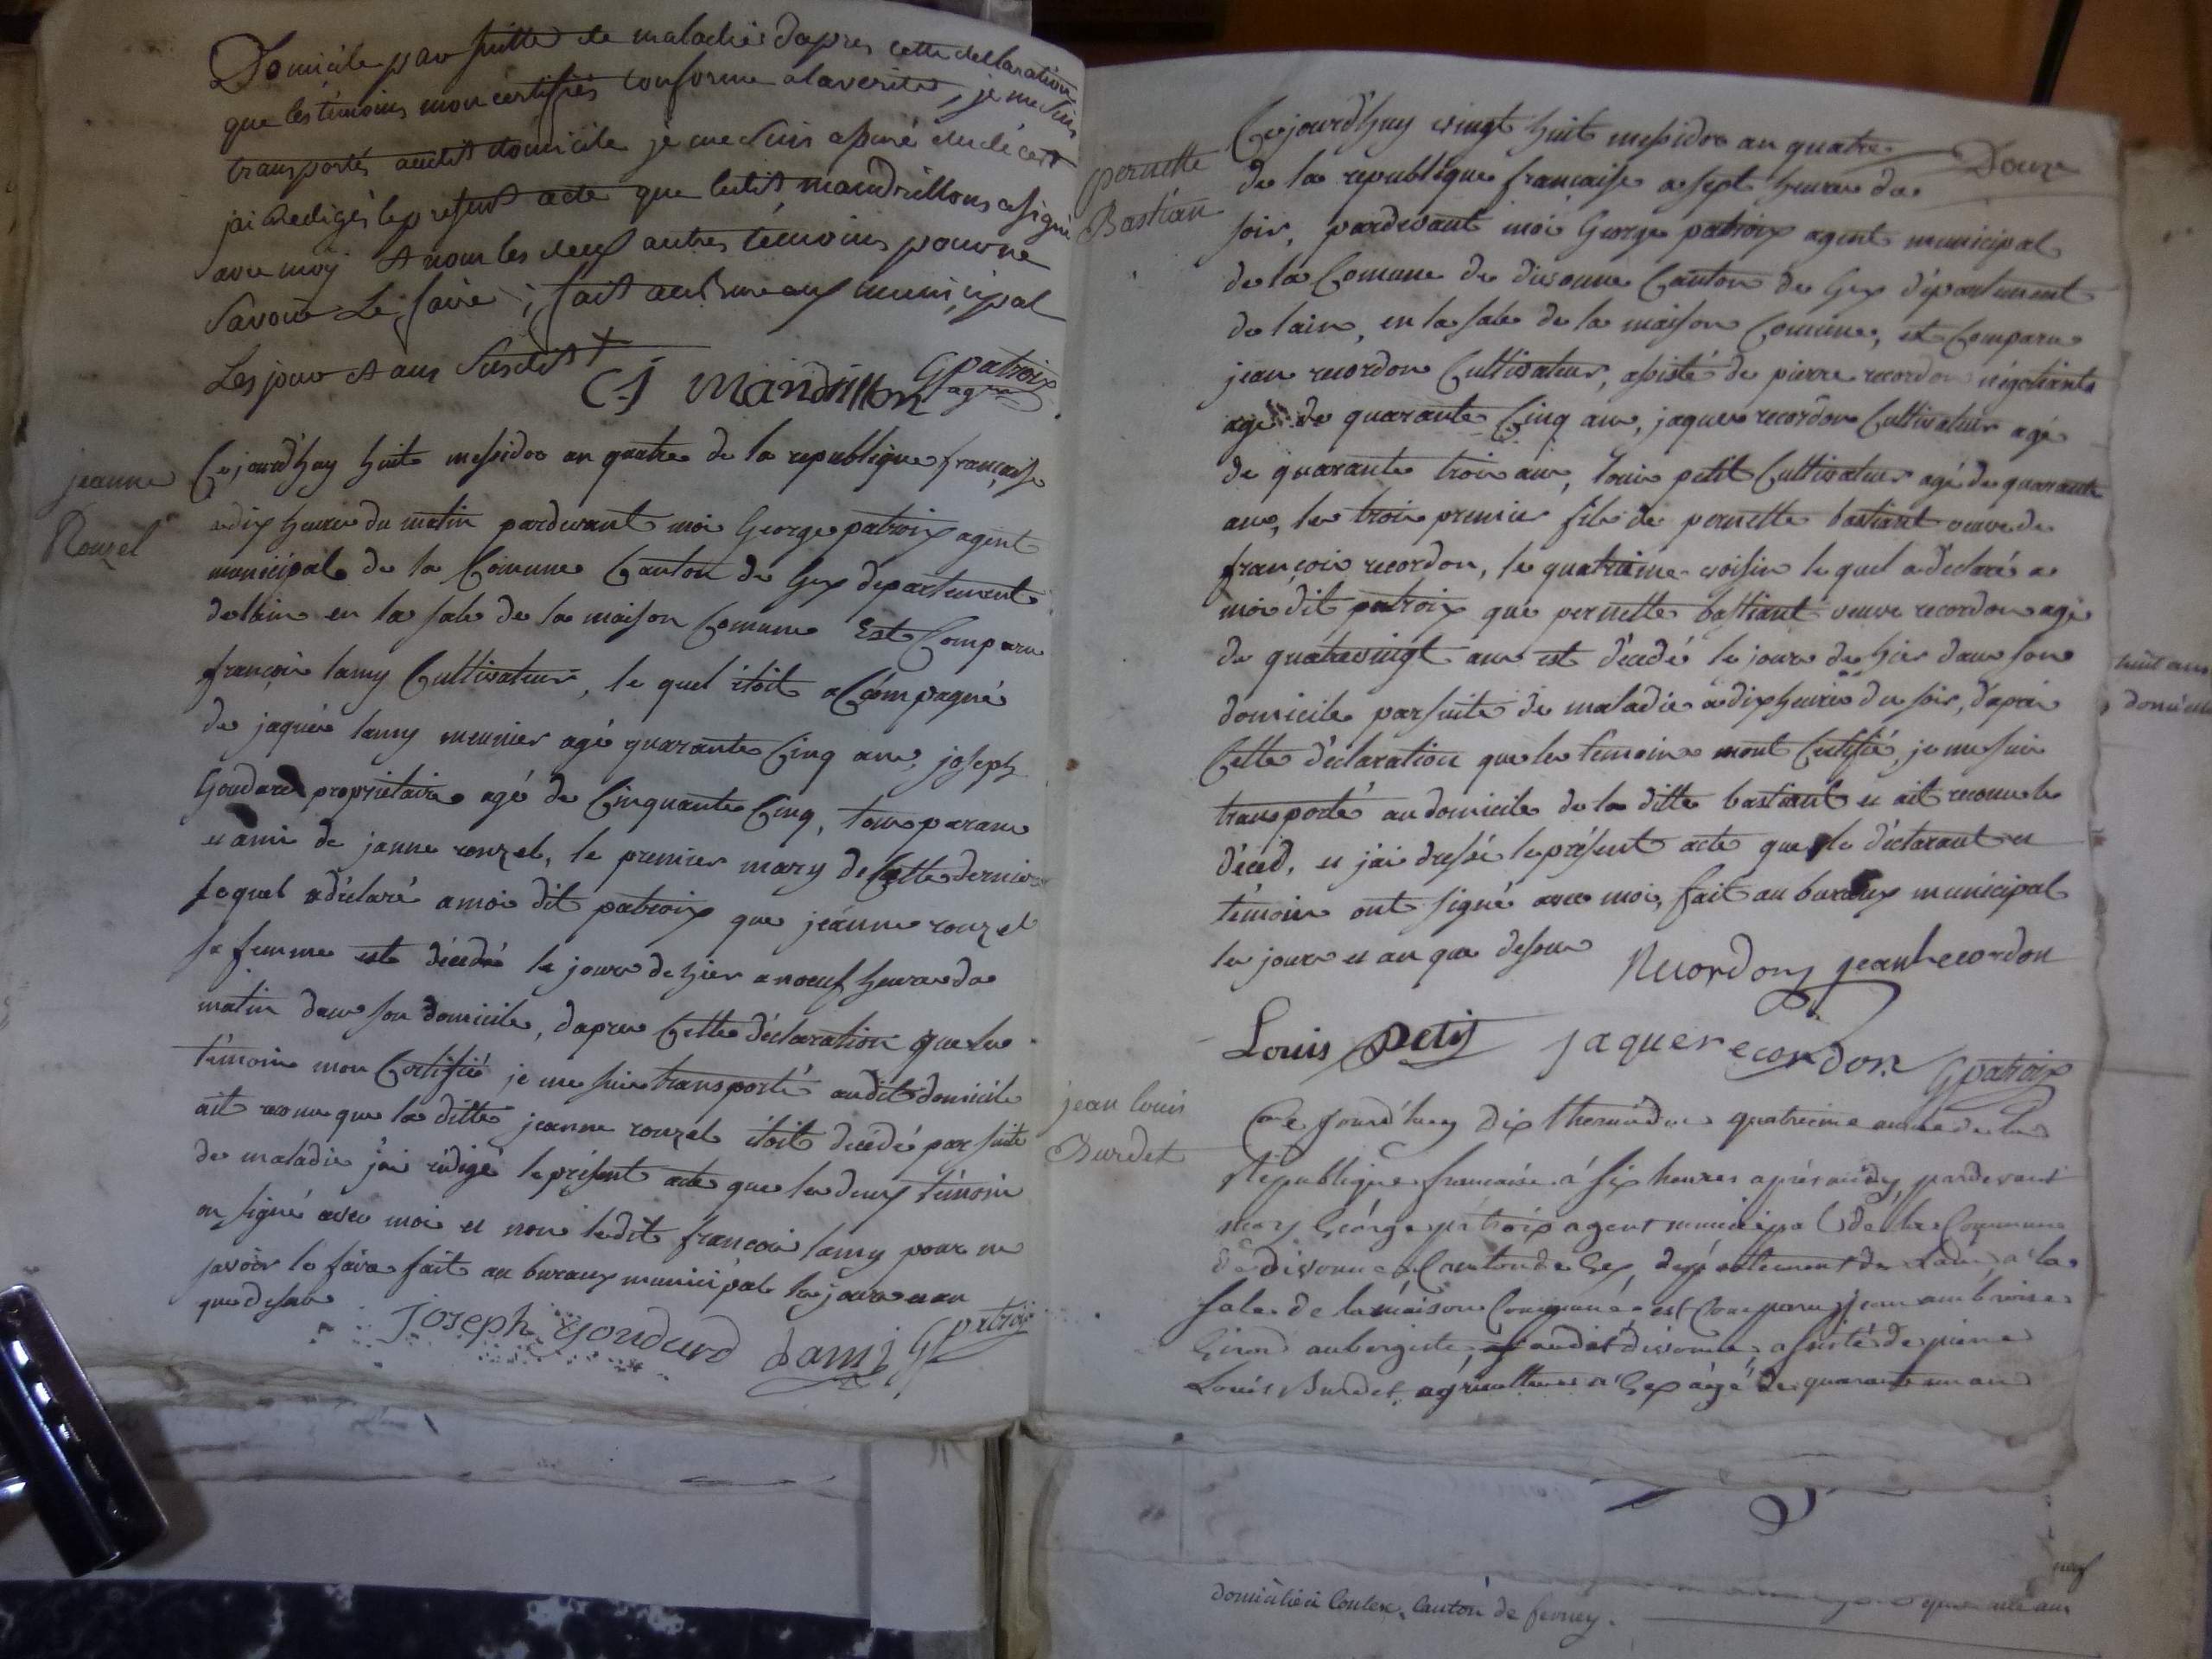 Domicile par suitte de maladie d'apres cette declaration
que les témoins mon certifiés conforme ala verité, je me suis
transportés audit domicile je me suis assuré du décert
jai Redigés le present acte que ledit mandrillons a signé
avec moy et nom les deux autres témoins pour ne
Savoir Le faire, fait au Bureaux municipal
Les jour et ans Susdit
C J Mandrillon G patroix agent
jeanne
Rouzel
Cejourd'huy huit messidor an quatre de la republique française
a dix heure du matin pardevant moi George patroix agent
municipale de la Comune Canton de Gex departement
de l'ain en la sale de la maison Comune Est Comparu
françois lamy Cultivateur, le quel étoit acCompagné
de jaques lamy meunier agé quarante Cinq ans, joseph
Goudard propriétaire agé de Cinquante Cinq, tous parans
et ami de janne rouzel, le premier mary de Cette derniere
lequel a déclaré a moi dit patroix que jeanne rouzel
sa femme est décedé le jour de hier a noeuf heure du
matin dans son domicile, d'apres Cette déclaration que les
témoins mon Certifié je me suis transporté audit domicile
ait reconu que la ditte jeanne rouzel étoit decedé par suite
de maladie j'ai rédigé le présent acte que les deux témoins
on signé avec moi et non ledit françois lamy pour ne
savoir le faire fait au bureaux municipale les jour et an
que dessus
Joseph Goudard Lami G patroix
Douze
pernette
Bastian
Cejourd'huy vingt huit messidor an quatre
de la republique francaise a sept heure du
soir, pardevant moi George patroix agent municipal
de la Comune de divonne Canton de Gex département
de lain, en la sale de la maison Comune, est Comparu
jean recordon Cultivateur, assisté de pierre recordon négotiant
agé de quarante Cinq ans, jaques recordon Cultivateur agé
de quarante trois ans, louis petit Cultivateur agé de quarante
ans, les trois premier fils de pernette bastiant veuve de
françois recordon, le quatrième voisin le quel a declaré a
moi dit patroix que pernette bastiant veuve recordon agé
de quatrevingt ans est décedé le jour de hier dans son
domicile par suite de maladie a dix heure du soir, d'apres
Cette déclaration que les temoins mont Certifié, je me suis
transporté au domicile de la ditte bastiant et ait reconu le
déced, et j'ai dressé le présent acte que le déclarant et
témoins ont signé avec moi, fait au bureaux municipal
les jour et an que dessus Recordon jean Recordon
Louis Petit jaque recordon G patroix
jean louis
Burdet
Ce jourd'huy Dix thermidor quatrieme année de la
République francaise à six heures après midy, pardevant
moy George patroix agent municipal de la Commune
de divonne Canton de Gex, departement de Lain à la
sale de la maison Commune est Comparu jean ambroise
Girod aubergiste audit divonne, assisté de pierre
Louis Burdet, agriculteur à Gex agé de quarante un ans
huit ans
domicile
neuf
quarante ans
domicilié à Conlex, Canton de ferney.